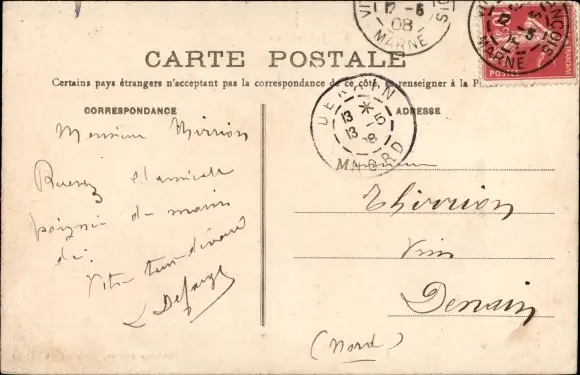 CARTE POSTALE
Certains pays étrangers n'acceptant pas la correspondance de ce côté, se renseigner à la P
CORRESPONDANCE
ADRESSE
Monsieur Thirrion
Recevez l'amicale
poignée de main
de
Votre tout dévoué
L Defarge
Thirrion
Vins
Denain
(Nord)
17 - 5
08
MARNE
13 - 5
13 08
NORD
MARNE
POSTES